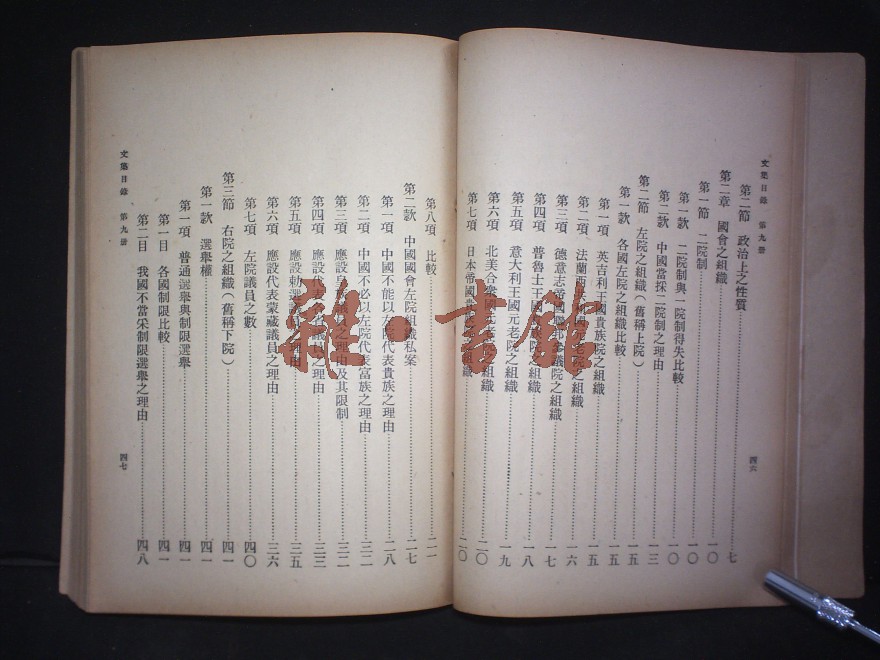 文集目錄 第九册
第二節 政治上之性質……七
第二章 國會之組織……一〇
第一節 二院制……一〇
第一款 二院制與一院制得失比較……一〇
第二款 中國當採二院制之理由……一三
第二節 左院之組織(舊稱上院)……一五
第一款 各國左院組織比較……一五
第一項 英吉利王國貴族院之組織……一五
第二項 法蘭西共和國元老院之組織……一六
第三項 德意志帝國聯邦參議院之組織……一七
第四項 普魯士王國院之組織……一八
第五項 意大利王國元老院之組織……一九
第六項 北美合衆國元老院之組織……二〇
第七項 日本帝國貴族院之組織……二〇
四六
第八項 比較……二一
第二款 中國國會左院組織私案……二七
第一項 中國不能以左院代表貴族之理由……二八
第二項 中國不必以左院代表富族之理由……三二
第三項 應設皇族議員之理由及其限制……三二
第四項 應設代表各省議員之理由……三三
第五項 應設勅選議員之理由……三五
第六項 應設代表蒙藏議員之理由……三六
第七項 左院議員之數……四〇
第三節 右院之組織(舊稱下院)……四一
第一款 選舉權……四一
第一項 普通選舉與制限選舉……四一
第一目 各國制限比較……四一
第二目 我國不當采制限選舉之理由……四八
文集目錄 第九册
四七
雜·書館